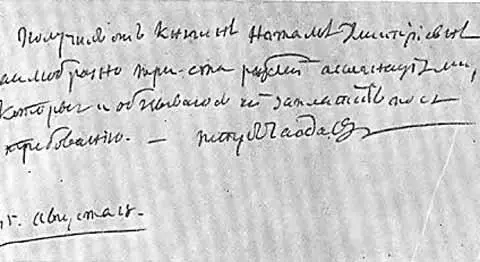 Получилъ отъ Княгинѣ Натальѣ Дмитріевнѣ
заимобразно три-ста рублей ассигнацiями,
которые и обязываюсь ей заплатить по ея
требованію. —
15. Августа